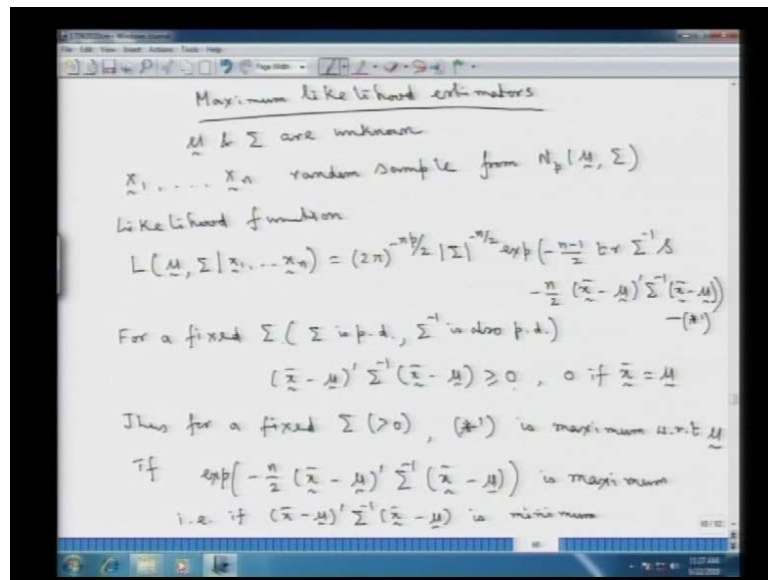 File Edit View Insert Actions Tools Help
Page Width
Maximum likelihood estimators
μ & Σ are unknown
x₁, . . . . x_n random sample from N_p (μ, Σ)
Likelihood function
L(μ, Σ | x₁, ... x_n) = (2π)^{-np/2} |Σ|^{-n/2} exp(-\frac{n-1}{2} tr Σ^{-1} S
-\frac{n}{2} (x̄ - μ)' Σ^{-1} (x̄ - μ))
-(*')
For a fixed Σ ( Σ is p.d., Σ^{-1} is also p.d.)
(x̄ - μ)' Σ^{-1} (x̄ - μ) ≥ 0 , 0 if x̄ = μ
Thus for a fixed Σ (>0) , (*') is maximum w.r.t μ
if exp(-\frac{n}{2} (x̄ - μ)' Σ^{-1} (x̄ - μ)) is maximum
i.e. if (x̄ - μ)' Σ^{-1} (x̄ - μ) is minimum
11:27 AM